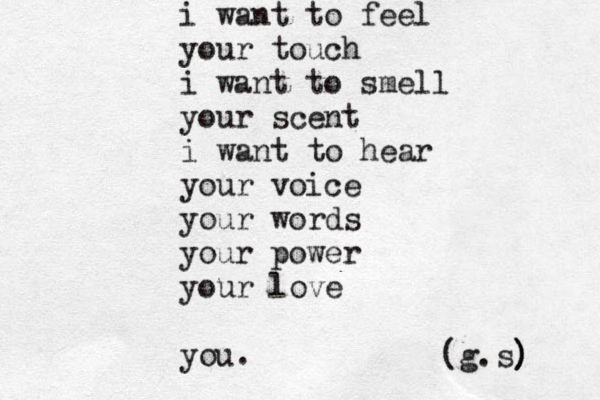 i want to feel
your touch
i want to smell
your scent
i want to hear
your voice
your words
your power
your love
you. (g.s)